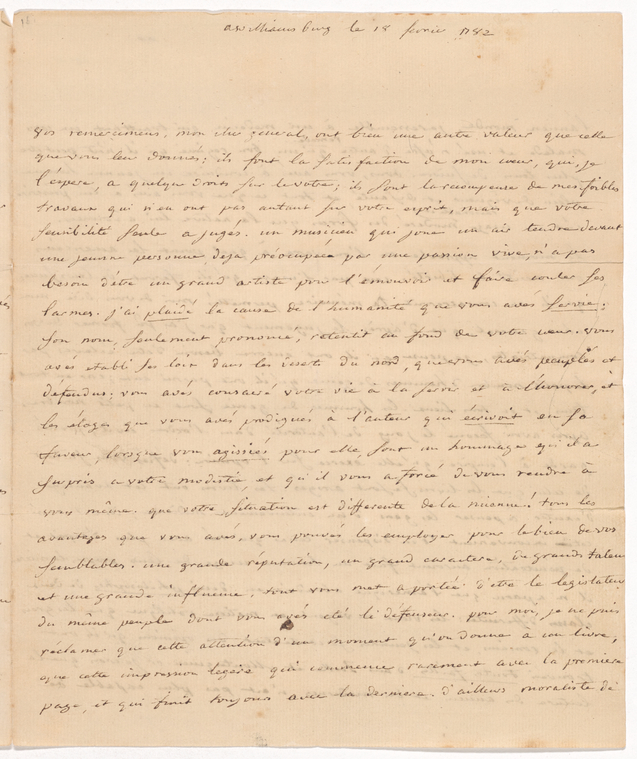 a williamsburg le 18 fevrier 1782
Vos remerciemens, mon cher general, ont bien une autre valeur que celle
que vous leur donnés; ils font la satisfaction de mon cœur, qui, je
l'espere, a quelque droits sur le votre; ils sont la recompense de mes foibles
travaux qui n'en ont pas autant sur votre esprit, mais que votre
sensibilité seule a jugés. un musicien qui joue un air tendre devant
une jeune personne deja préocupée par une passion vive, n'a pas
besoin d'etre un grand artiste pour l'émouvoir et faire couler ses
larmes. j'ai plaidé la cause de l'humanité que vous avés servie;
son nom, seulement prononcé, retentit au fond de votre cœur. vous
avés etabli ses loix dans les deserts du nord, que vous avés peuplés et
défendus. vous avés consacré votre vie à la servir et à l'honorer, et
les éloges que vous avés prodigués à l'auteur qui écrivoit en sa
faveur, lorsque vous agissiés pour elle, sont un hommage qu'il a
surpris a votre modestie et qu'il vous a forcé de vous rendre à
vous même. que votre situation est differente de la mienne! tous les
avantages que vous avés, vous pouvés les employer pour le bien de vos
semblables. une grande réputation, un grand caractere, de grands talens
et une grande influence, tout vous met a portée d'etre le legislateur
du même peuple dont vous avés eté le défenseur. pour moi, je ne puis
réclamer que cette attention d'un moment qu'on donne à un livre,
que cette impression legere qui commence rarement avec la premiere
page, et qui finit toujours avec la derniere. d'ailleurs moraliste de